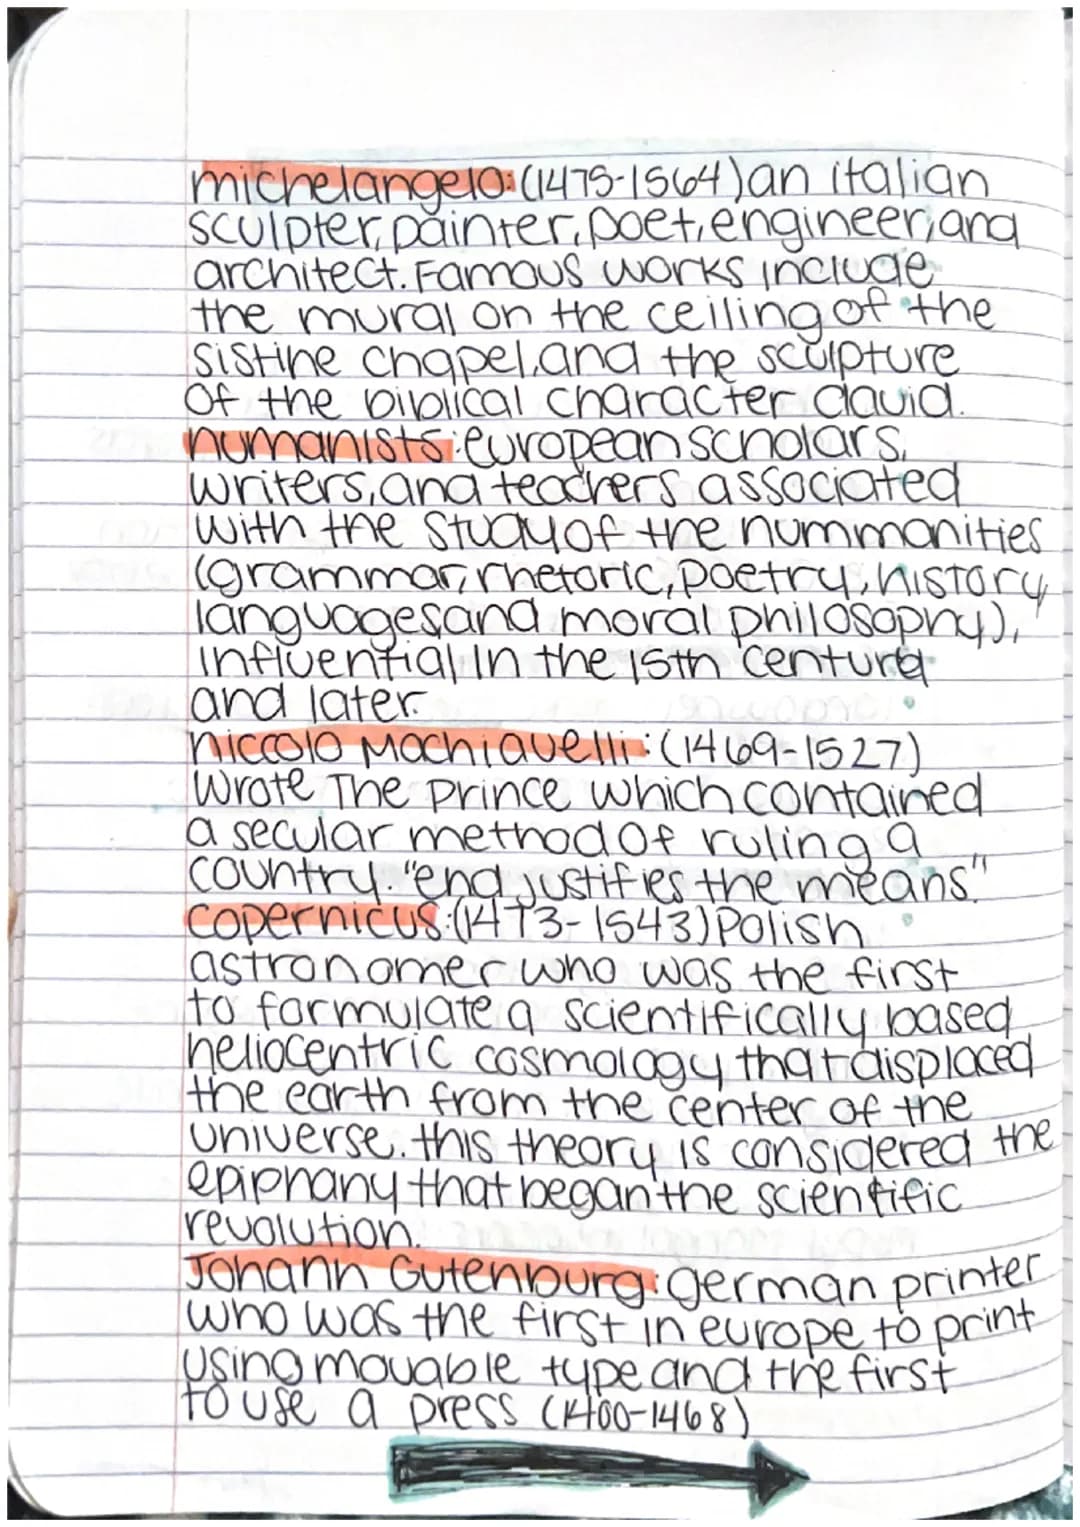 michelangelo: (1475-1564) an italian
sculpter, painter, poet, engineer, and
architect. Famous works include
the mural on the ceiling of the
sistine chapel, and the sculpture
of the biblical character david.
humanists: european scholars,
writers, and teachers associated
with the study of the hummanities
(grammar, rhetoric, poetry, history,
languages, and moral philosophy),
influential in the 15th century
and later.
niccolo Machiavelli: (1469-1527)
Wrote The Prince which contained
a secular method of ruling a
country. "end justifies the means."
copernicus: (1473-1543) Polish
astronomer who was the first
to formulate a scientifically based
heliocentric cosmology that displaced
the earth from the center of the
universe. this theory is considered the
epiphany that began the scientific
revolution.
Johann Gutenburg: german printer
who was the first in europe to print
using movable type and the first
to use a press (1400-1468)